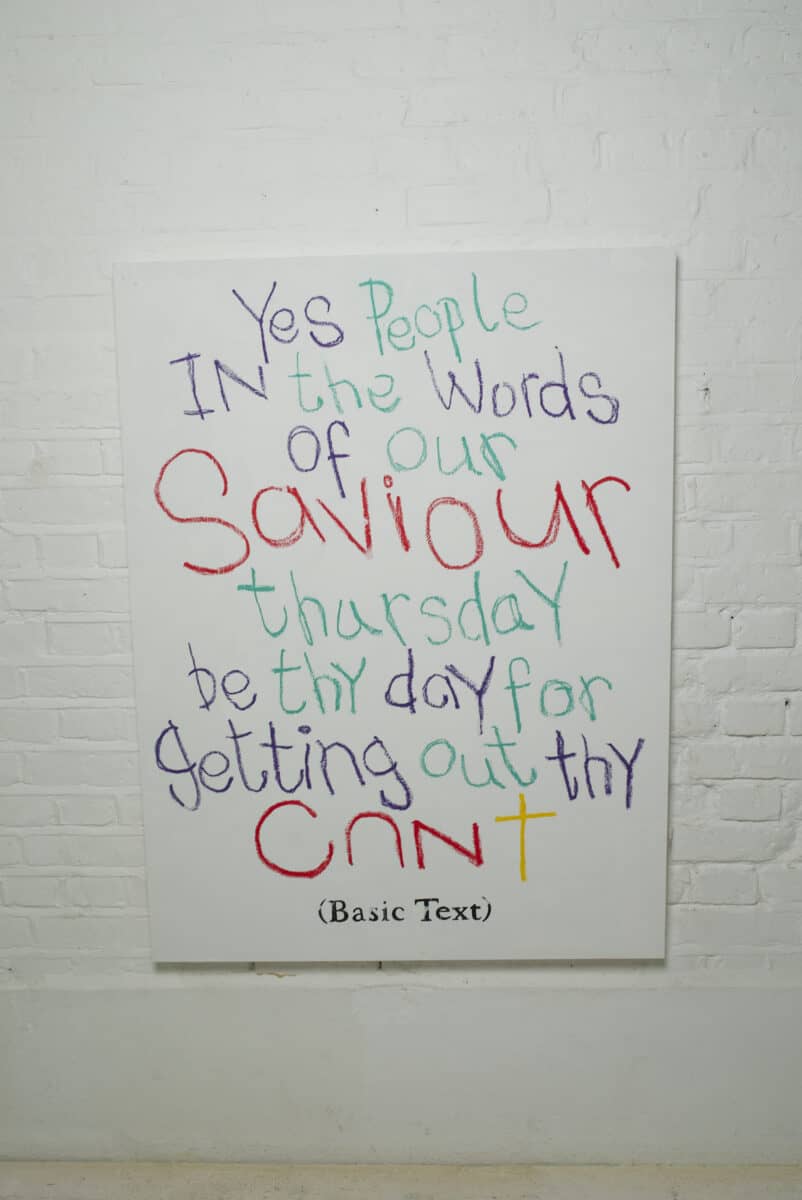 Yes People
IN the Words
of our
Saviour
thursdaY
be thY daY for
getting out thY
CnN†
(Basic Text)